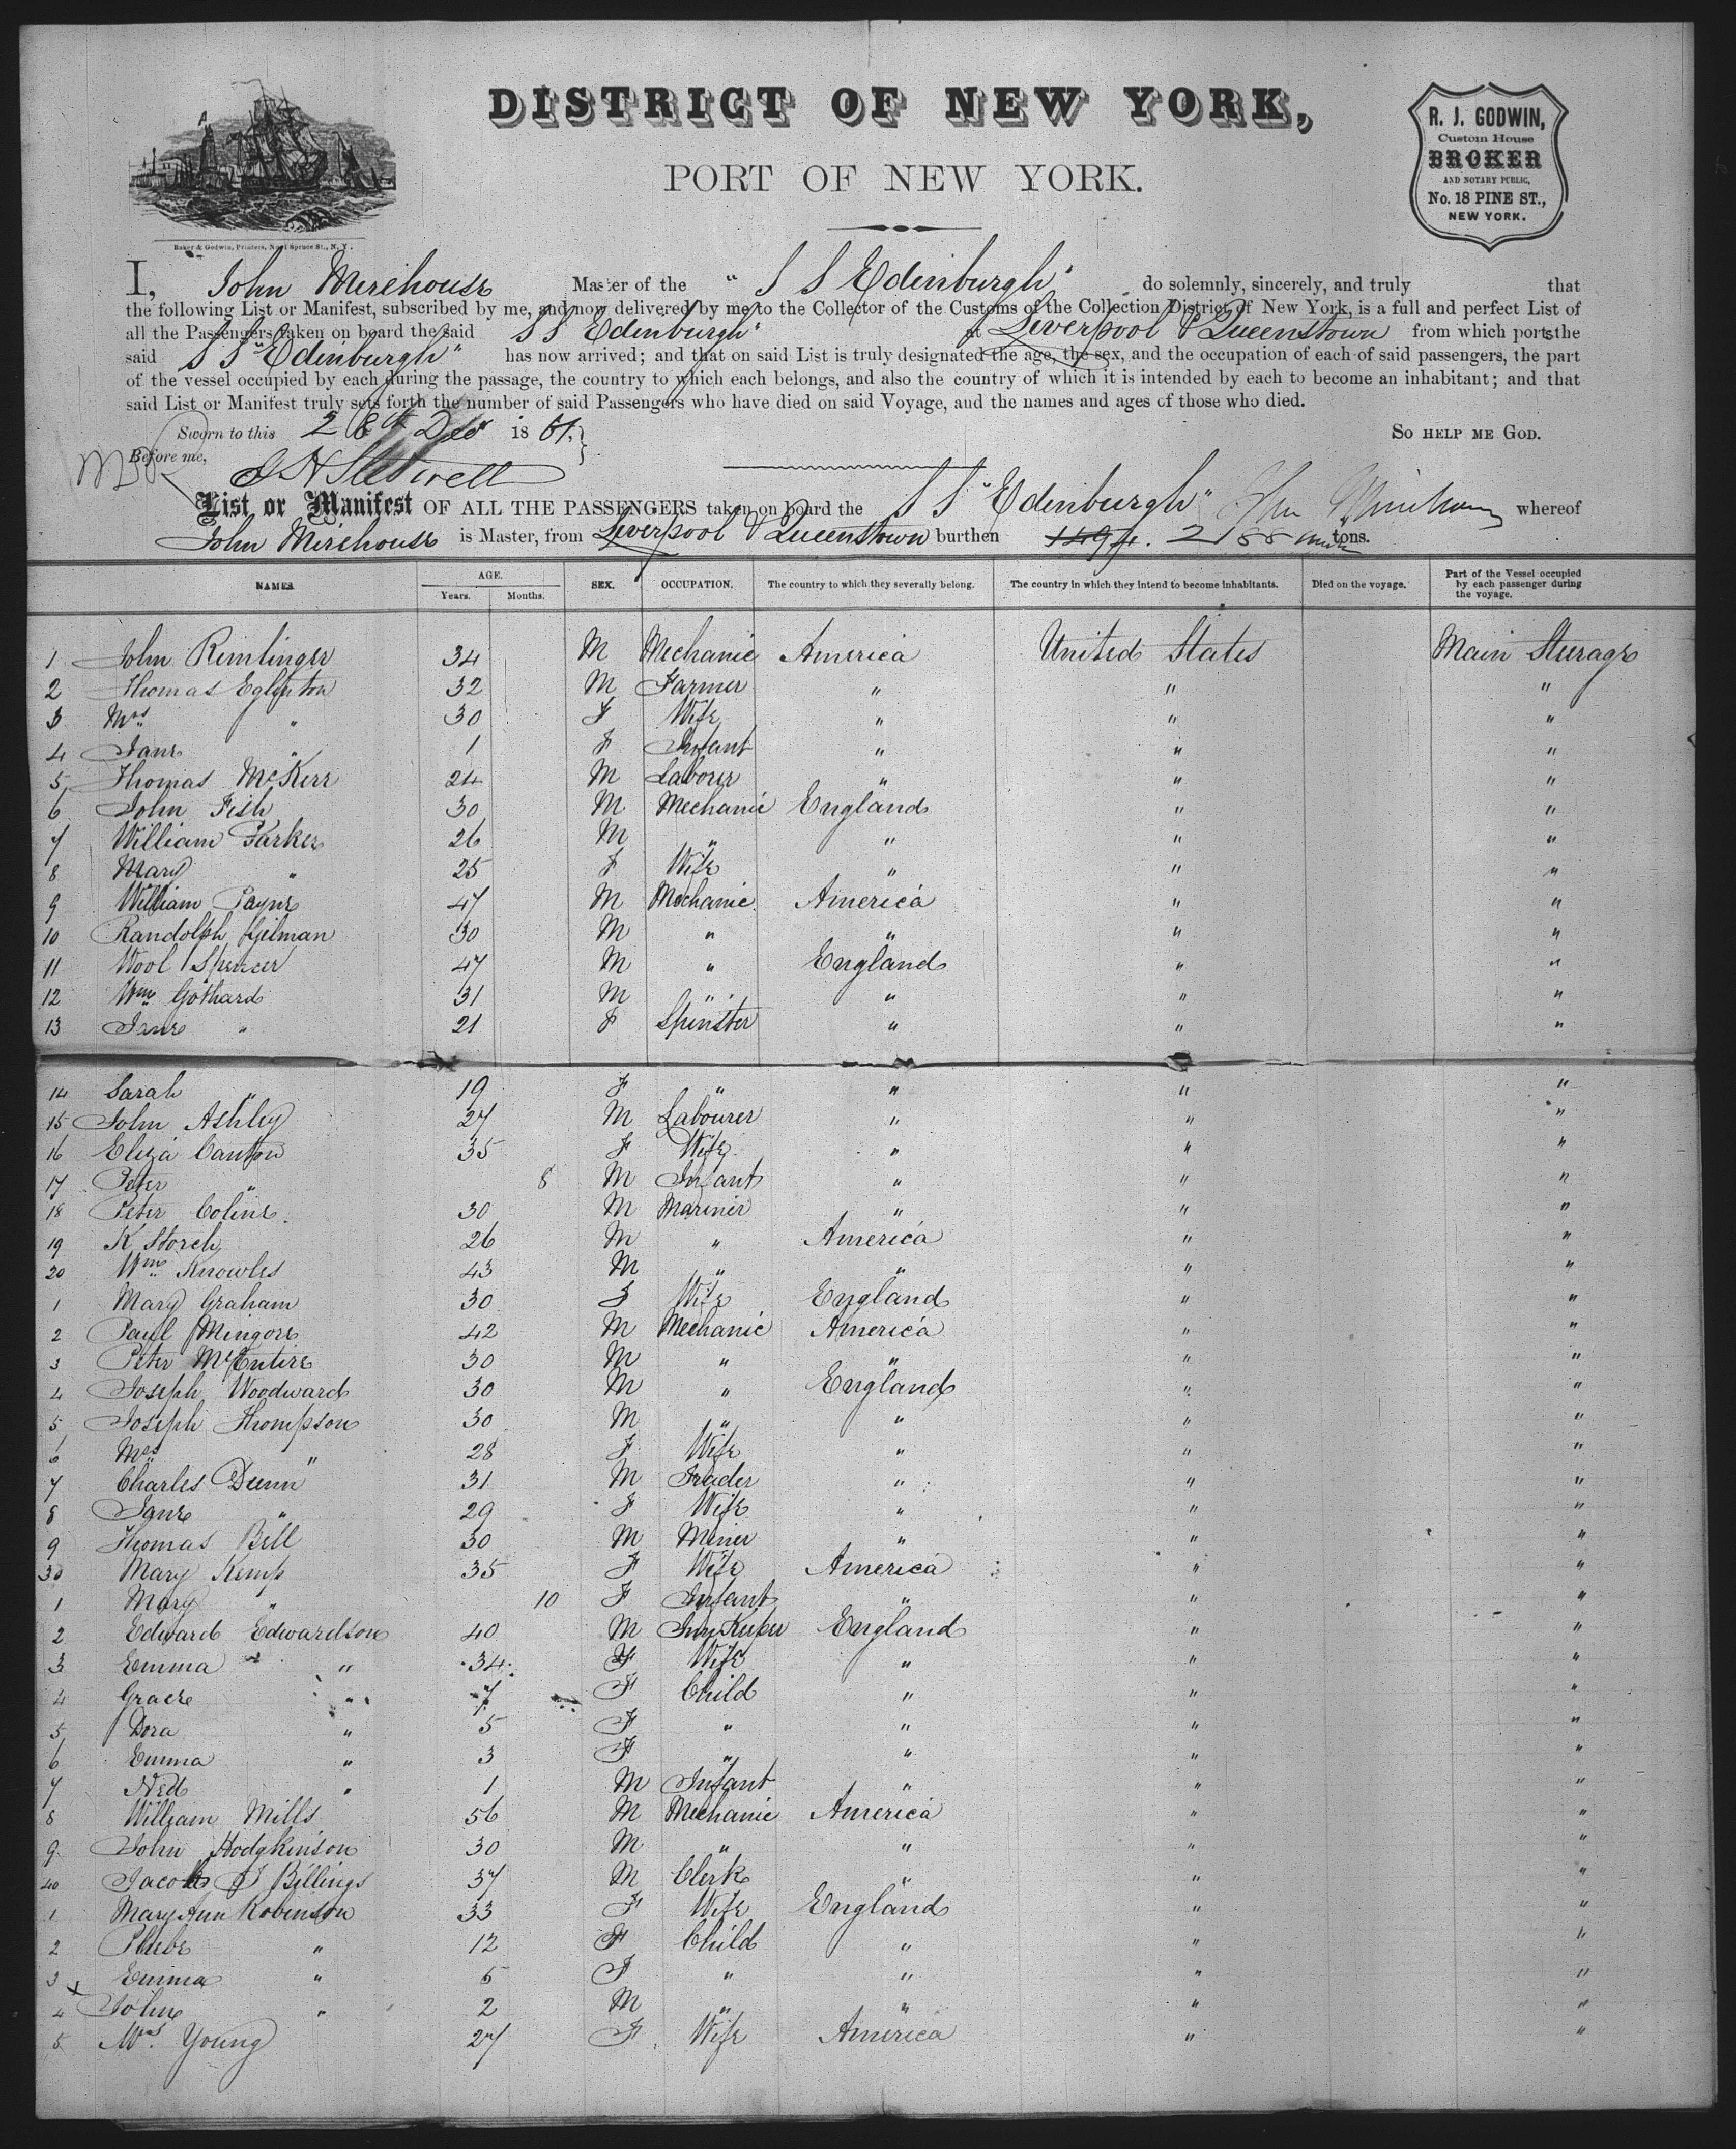 DISTRICT OF NEW YORK,
PORT OF NEW YORK.
R. J. GODWIN,
Custom House
BROKER
AND NOTARY PUBLIC,
No. 18 PINE ST.,
NEW YORK.
Baker & Godwin, Printers, No. 1 Spruce St., N. Y.
I, John Mirehouse Master of the "S S Edinburgh" do solemnly, sincerely, and truly that
the following List or Manifest, subscribed by me, and now delivered by me to the Collector of the Customs of the Collection District of New York, is a full and perfect List of
all the Passengers taken on board the said S S Edinburgh" at Liverpool & Queenstown from which ports the
said S S "Edinburgh" has now arrived; and that on said List is truly designated the age, the sex, and the occupation of each of said passengers, the part
of the vessel occupied by each during the passage, the country to which each belongs, and also the country of which it is intended by each to become an inhabitant; and that
said List or Manifest truly sets forth the number of said Passengers who have died on said Voyage, and the names and ages of those who died.
Sworn to this 26th Dec 1861. SO HELP ME GOD.
Before me,
List or Manifest OF ALL THE PASSENGERS taken on board the S S "Edinburgh" whereof
John Mirehouse is Master, from Liverpool & Queenstown burthen 2188 tons.
NAMES. AGE. SEX. OCCUPATION. The country to which they severally belong. The country in which they intend to become inhabitants. Died on the voyage. Part of the Vessel occupied by each passenger during the voyage.
Years. Months.
1 John Rimlinger 34 M Mechanic America United States Main Steerage
2 Thomas Eglinton 32 M Farmer " " "
3 Mrs " 30 F Wife " " "
4 Jane " 1 F Infant " " "
5 Thomas McKerr 24 M Labourer " " "
6 John Fish 30 M Mechanic England " "
7 William Parker 26 M " " " "
8 Mary " 25 F Wife " " "
9 William Payne 47 M Mechanic America " "
10 Randolph Gilman 30 M " " " "
11 Wool Spencer 47 M " England " "
12 Wm Gothard 31 M " " " "
13 Jane " 21 F Spinster " " "
14 Sarah " 19 F " " " "
15 John Ashley 27 M Labourer " " "
16 Eliza Canton 35 F Wife " " "
17 Peter " 8 M Infant " " "
18 Peter Coline 30 M Mariner " " "
19 K Storch 26 M " America " "
20 Wm Knowles 43 M " " " "
1 Mary Graham 30 F Wife England " "
2 Paul Mingore 42 M Mechanic America " "
3 Peter McEntire 30 M " " " "
4 Joseph Woodward 30 M " England " "
5 Joseph Thompson 30 M " " " "
6 Mrs " 28 F Wife " " "
7 Charles Dunn 31 M Trader " " "
8 Jane " 29 F Wife " " "
9 Thomas Bell 30 M Miner " " "
30 Mary Kemp 35 F Wife America " "
1 Mary " 10 F Infant " " "
2 Edward Edwardson 40 M Inn Keeper England " "
3 Emma " 34 F Wife " " "
4 Grace " 7 F Child " " "
5 Dora " 5 F " " " "
6 Emma " 3 F " " " "
7 Ned " 1 M Infant " " "
8 William Mills 56 M Mechanic America " "
9 John Hodgkinson 30 M " " " "
40 Jacob J Billings 37 M Clerk " " "
1 Mary Ann Robinson 33 F Wife England " "
2 Phebe " 12 F Child " " "
3 Emma " 5 F " " " "
4 x John " 2 M " " " "
5 Mrs. Young 27 F Wife America " "